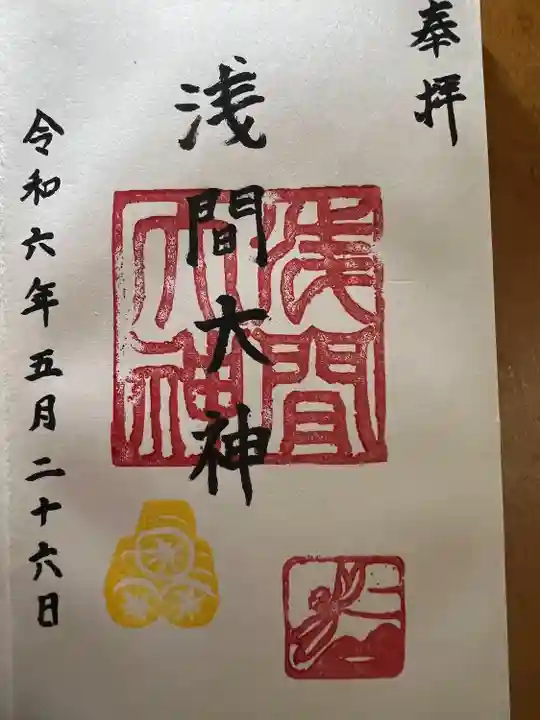 奉拝
浅間大神
浅間大神
令和六年五月二十六日